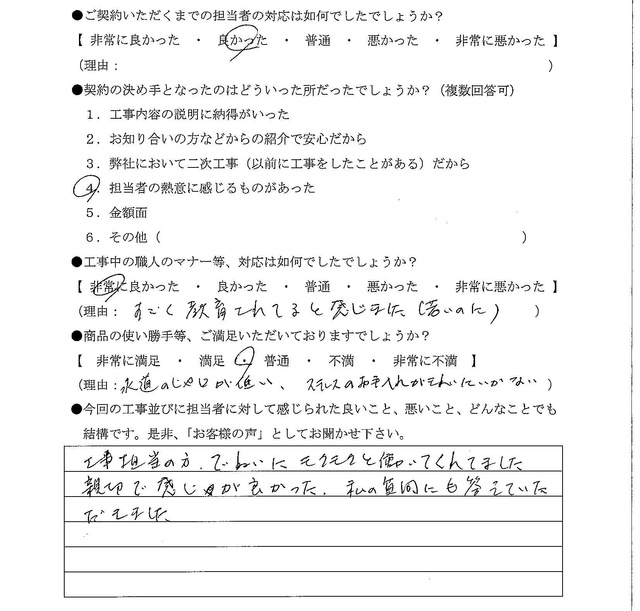 ●ご契約いただくまでの担当者の対応は如何でしたでしょうか？
【 非常に良かった ・ 良かった ・ 普通 ・ 悪かった ・ 非常に悪かった 】
（理由： ）
●契約の決め手となったのはどういった所だったでしょうか？（複数回答可）
１．工事内容の説明に納得がいった
２．お知り合いの方などからの紹介で安心だから
３．弊社において二次工事（以前に工事をしたことがある）だから
４．担当者の熱意に感じるものがあった
５．金額面
６．その他（ ）
●工事中の職人のマナー等、対応は如何でしたでしょうか？
【 非常に良かった ・ 良かった ・ 普通 ・ 悪かった ・ 非常に悪かった 】
（理由： すごく教育されてると感じました（若いのに） ）
●商品の使い勝手等、ご満足いただいておりますでしょうか？
【 非常に満足 ・ 満足 ・ 普通 ・ 不満 ・ 非常に不満 】
（理由：水道のじゃ口が低い、ステンレスのお手入れがきれいにいかない ）
●今回の工事並びに担当者に対して感じられた良いこと、悪いこと、どんなことでも
結構です。是非、「お客様の声」としてお聞かせ下さい。
工事担当の方、ていねいにモクモクと働いてくれてました
親切で感じが良かった、私の質問にも答えていた
だきました